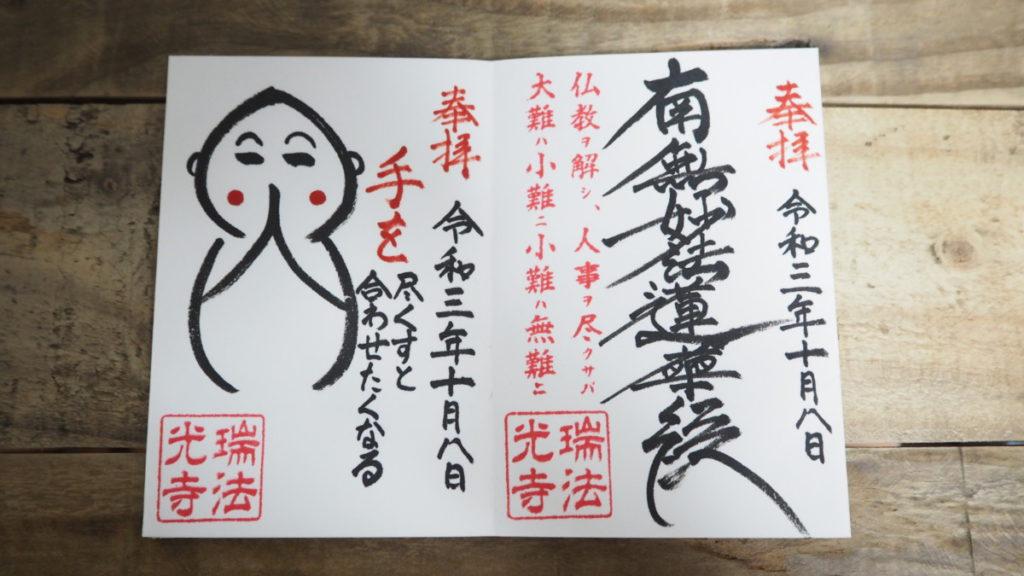 奉拝
令和三年十月八日
南無妙法蓮華経
仏教ヲ解シ、人事ヲ尽クサバ
大難ハ小難ニ小難ハ無難ニ
瑞法
光寺
奉拝
令和三年十月八日
手を
尽くすと
合わせたくなる
瑞法
光寺